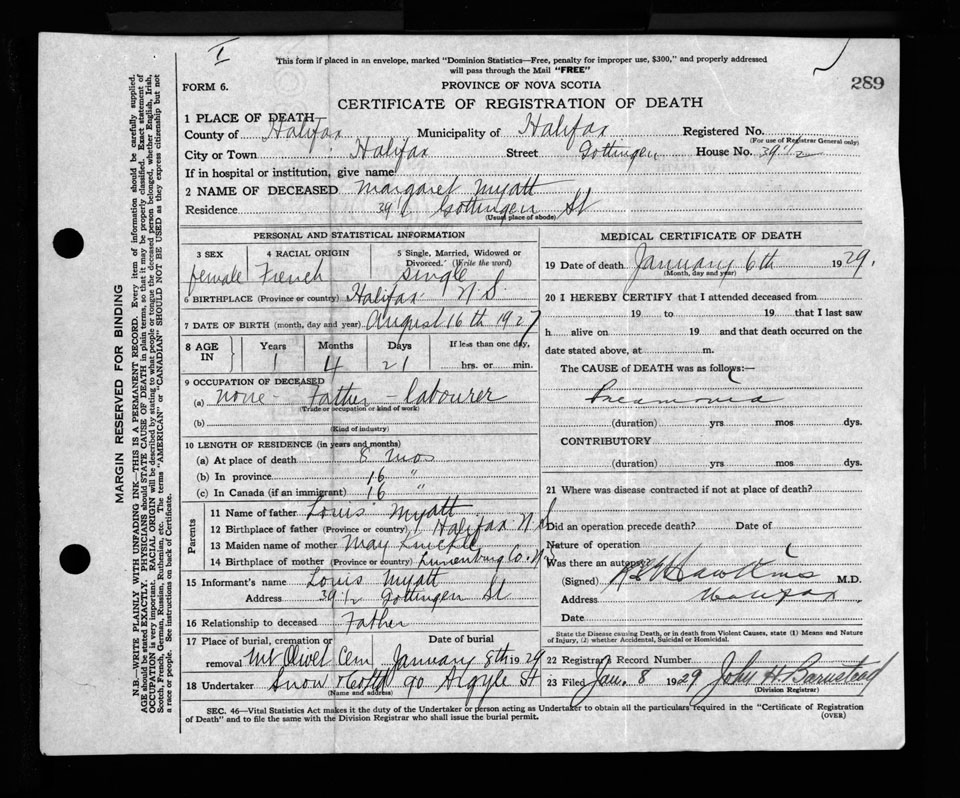 I
This form if placed in an envelope, marked "Dominion Statistics—Free, penalty for improper use, $300," and properly addressed
will pass through the Mail "FREE"
289
FORM 6.
PROVINCE OF NOVA SCOTIA
CERTIFICATE OF REGISTRATION OF DEATH
1 PLACE OF DEATH
County of Halifax Municipality of Halifax Registered No.
(For use of Registrar General only)
City or Town Halifax Street Gottingen House No. 39 1/2
If in hospital or institution, give name
2 NAME OF DECEASED Margaret Myatt
Residence 39 1/2 Gottingen St
(Usual place of abode)
PERSONAL AND STATISTICAL INFORMATION
3 SEX 4 RACIAL ORIGIN 5 Single, Married, Widowed or
Divorced. (Write the word)
female French Single
6 BIRTHPLACE (Province or country) Halifax N.S.
7 DATE OF BIRTH (month, day and year) August 16th 1927
8 AGE IN Years Months Days If less than one day,
1 4 21 hrs. or min.
9 OCCUPATION OF DECEASED
(a) none - Father - labourer
(Trade or occupation or kind of work)
(b)
(Kind of industry)
10 LENGTH OF RESIDENCE (in years and months)
(a) At place of death 8 mos
(b) In province 16 "
(c) In Canada (if an immigrant) 16 "
Parents
11 Name of father Louis Myatt
12 Birthplace of father (Province or country) Halifax N.S
13 Maiden name of mother May
14 Birthplace of mother (Province or country) Lunenburg Co. N.S
15 Informant's name Louis Myatt
Address 39 1/2 Gottingen St
16 Relationship to deceased Father
17 Place of burial, cremation or Date of burial
removal Mt Olivet Cem January 8th 1929
18 Undertaker Snow & Co Ltd 90 Argyle St
(Name and address)
MEDICAL CERTIFICATE OF DEATH
19 Date of death January 6th 1929.
(Month, day and year)
20 I HEREBY CERTIFY that I attended deceased from
19 to 19 that I last saw
h alive on 19 and that death occurred on the
date stated above, at m.
The CAUSE of DEATH was as follows:
Pneumonia
(duration) yrs mos dys.
CONTRIBUTORY
(duration) yrs mos dys.
21 Where was disease contracted if not at place of death?
Did an operation precede death? Date of
Nature of operation
Was there an autopsy?
(Signed) Hawkins M.D.
Address Halifax
Date
State the Disease causing Death, or in death from Violent Causes, state (1) Means and Nature
of Injury, (2) whether Accidental, Suicidal or Homicidal.
22 Registrar's Record Number
23 Filed Jan. 8 1929 John H Barnstead
(Division Registrar)
SEC. 46—Vital Statistics Act makes it the duty of the Undertaker or person acting as Undertaker to obtain all the particulars required in the "Certificate of Registration
of Death" and to file the same with the Division Registrar who shall issue the burial permit.
(OVER)
MARGIN RESERVED FOR BINDING
N.B.—WRITE PLAINLY WITH UNFADING INK—THIS IS A PERMANENT RECORD. Every item of information should be carefully supplied.
AGE should be stated EXACTLY. PHYSICIANS should STATE CAUSE OF DEATH in plain terms, so that it may be properly classified. Exact statement of
OCCUPATION is very important. RACIAL ORIGIN will be described by stating to what people or tongue the deceased person belonged, whether English, Irish,
Scotch, French, German, Russian, Ruthenian, etc. The terms "AMERICAN" or "CANADIAN" SHOULD NOT BE USED as they express citizenship but not
a race or people. See instructions on back of Certificate.